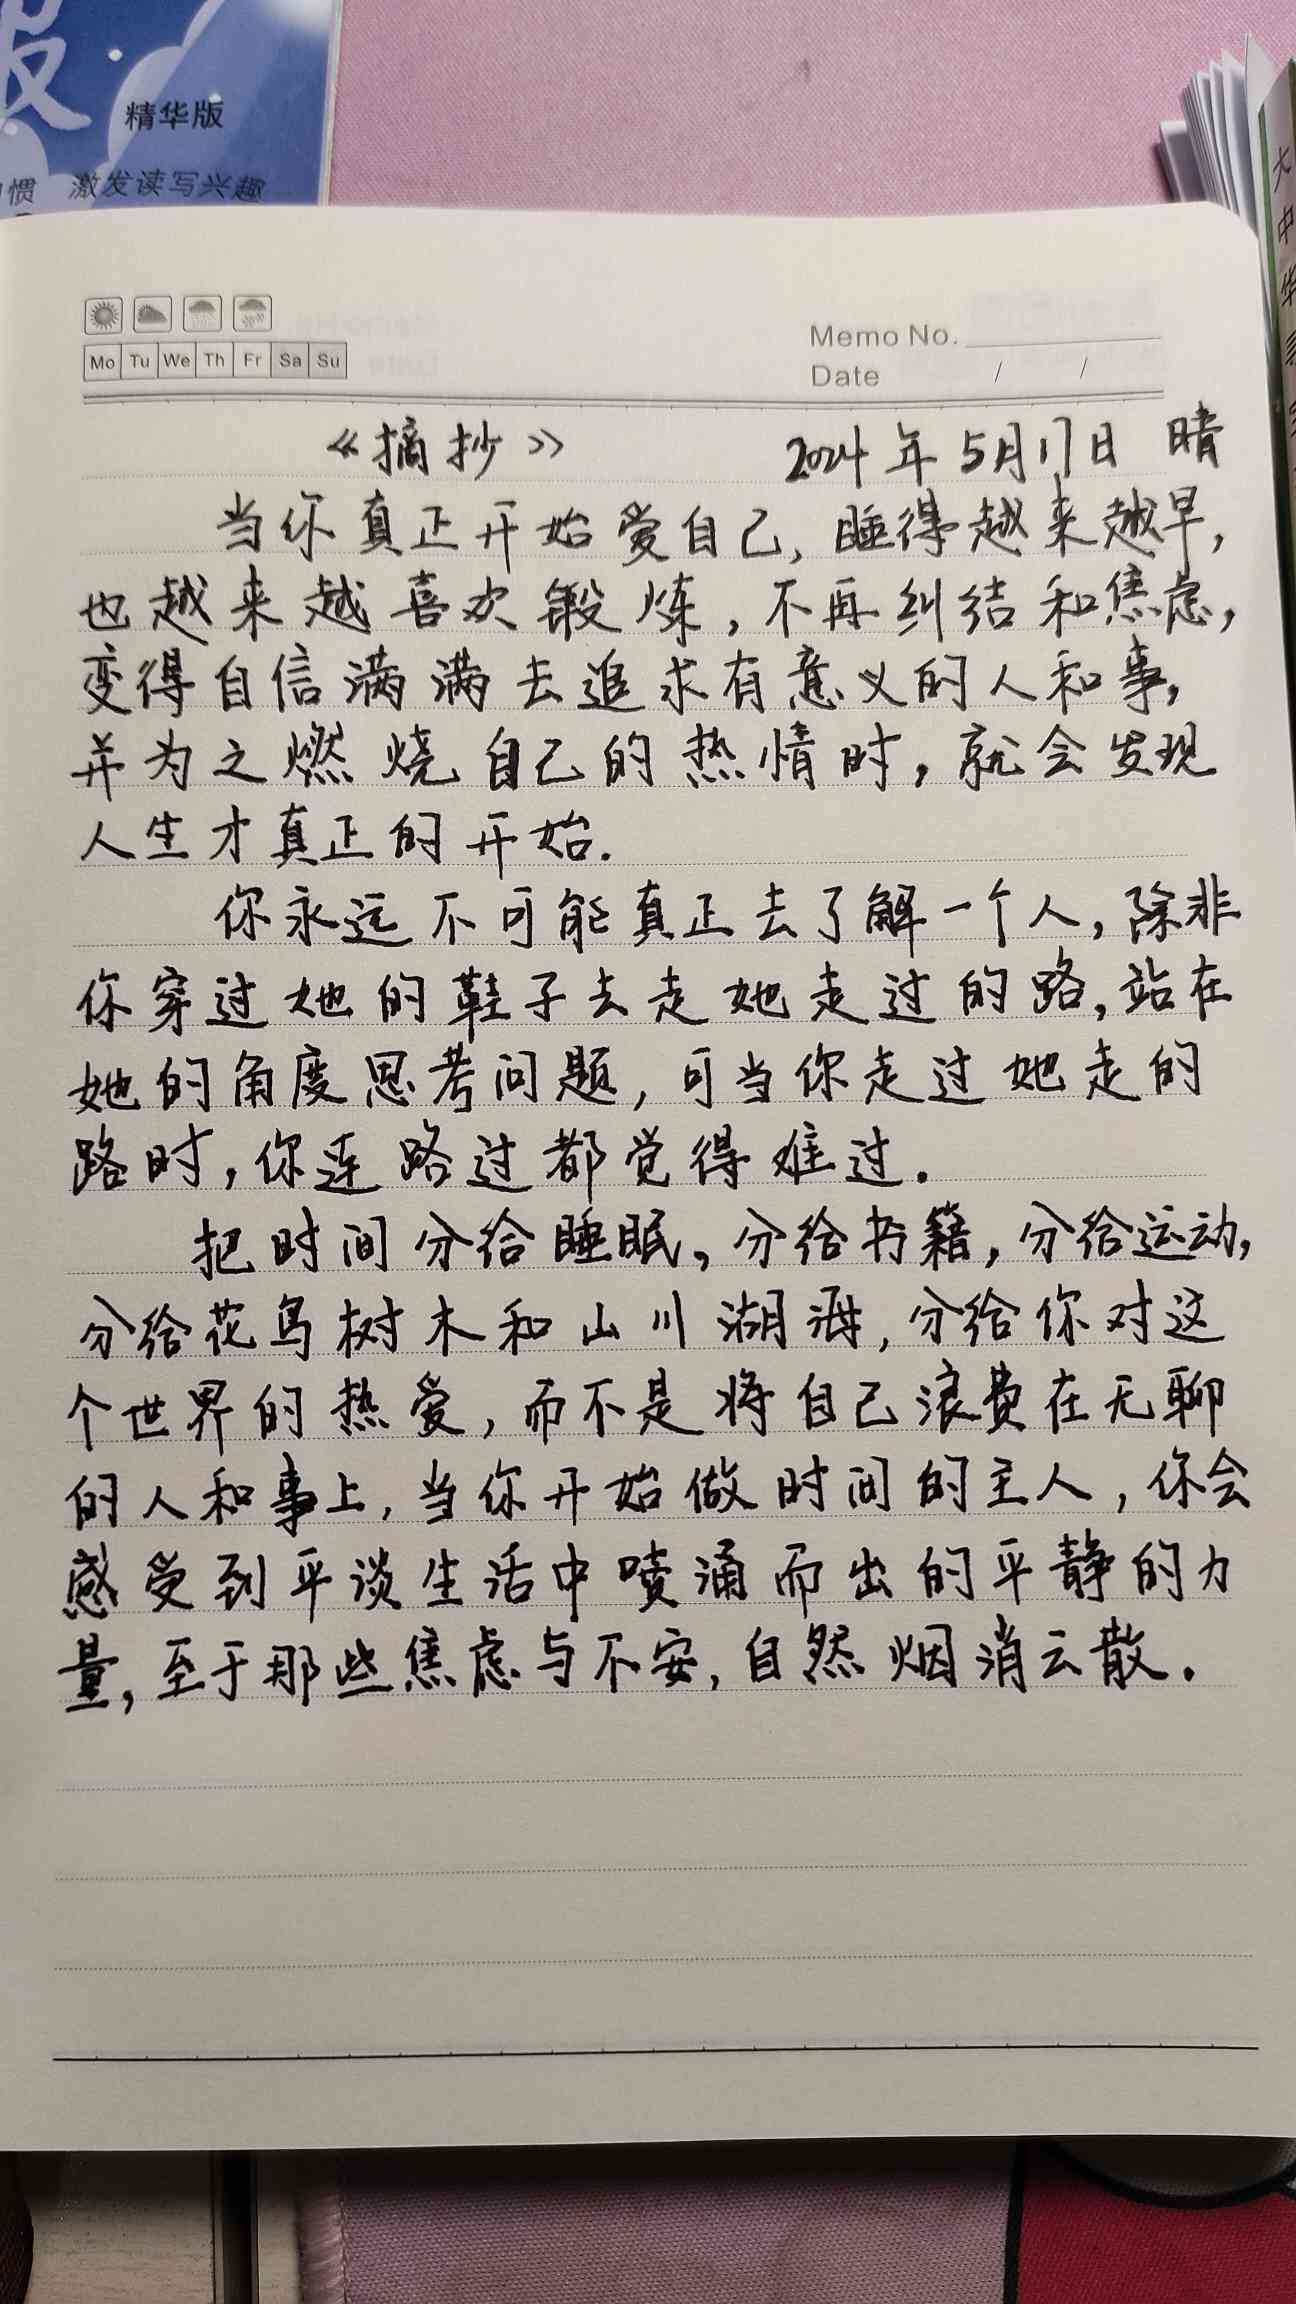 报
精华版
惯 激发读写兴趣
大中华
Memo No.
Mo Tu We Th Fr Sa Su
Date / /
《摘抄》 2024年5月17日 晴
当你真正开始爱自己,睡得越来越早,
也越来越喜欢锻炼,不再纠结和焦虑,
变得自信满满去追求有意义的人和事,
并为之燃烧自己的热情时,就会发现
人生才真正的开始.
你永远不可能真正去了解一个人,除非
你穿过她的鞋子去走她走过的路,站在
她的角度思考问题,可当你走过她走的
路时,你连路过都觉得难过.
把时间分给睡眠,分给书籍,分给运动,
分给花鸟树木和山川湖海,分给你对这
个世界的热爱,而不是将自己浪费在无聊
的人和事上,当你开始做时间的主人,你会
感受到平淡生活中喷涌而出的平静的力
量,至于那些焦虑与不安,自然烟消云散.